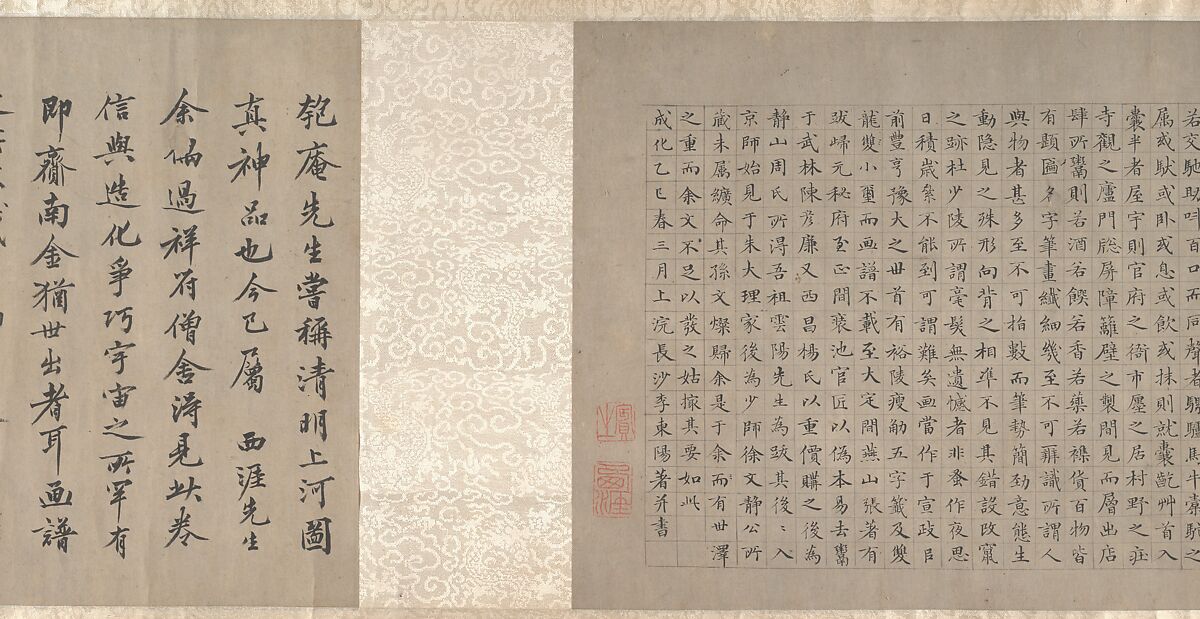 若交馳助呼百口而同聲者驢騾馬牛橐駝之
属或馱或卧或息或飲或抹則就囊齕艸首入
囊半者屋宇則官府之衙市廛之居村野之莊
寺觀之廬門牎屏障籬壁之製間見而層出店
肆所鬻則若酒若饌若香若藥若襍貨百物皆
有題匾名字筆畫纖細幾至不可辯識所謂人
與物者甚多至不可枱數而筆勢簡劲意態生
動隐見之殊形向背之相準不見其錯設改竄
之跡杜少陵所謂毫髮無遺憾者非蚤作夜思
日積歲絫不能到可謂難矣画當作于宣政㠯
前豐亨豫大之世首有裕陵瘦觔五字籖及雙
龍雙小璽而画譜不載至大定間燕山張著有
跋歸元秘府至正間裴池官匠以偽本易去鬻
于武林陳彦廉又西昌楊氏以重價購之後為
静山周氏所得吾祖雲陽先生為跋其後〻入
京師始見于朱大理家後為少師徐文靜公所
藏未属纊命其孫文燦歸余是于余而有世澤
之重而余文不足以發之姑㨿其要如此
成化乙巳春三月上浣長沙李東陽著并書
賓之
西涯
匏庵先生嘗稱清明上河圖
真神品也今已屬 西涯先生
余偶過祥符僧舍得見此卷
信與造化爭巧宇宙之所罕有
即齋南金猶世出者耳画譜